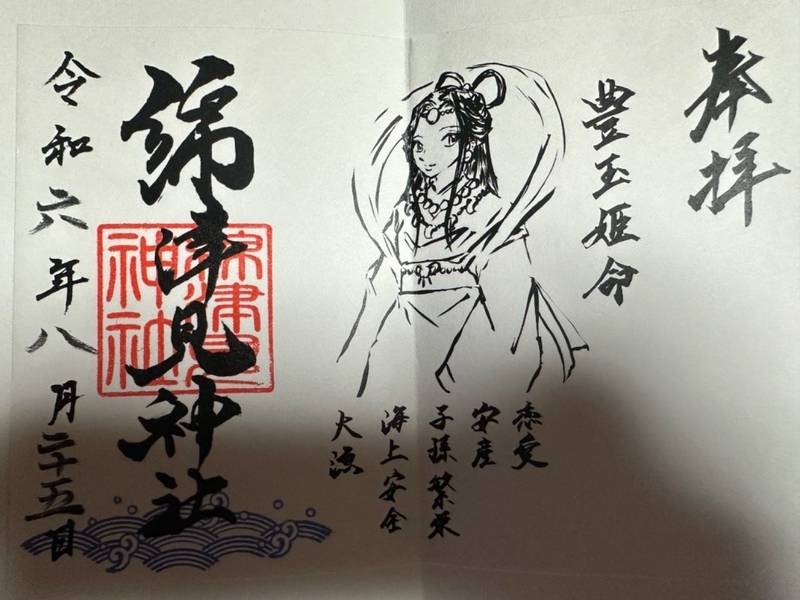 奉拝
豊玉姫命
恋愛
安産
子孫繁栄
海上安全
大漁
綿津見神社
令和六年八月二十五日